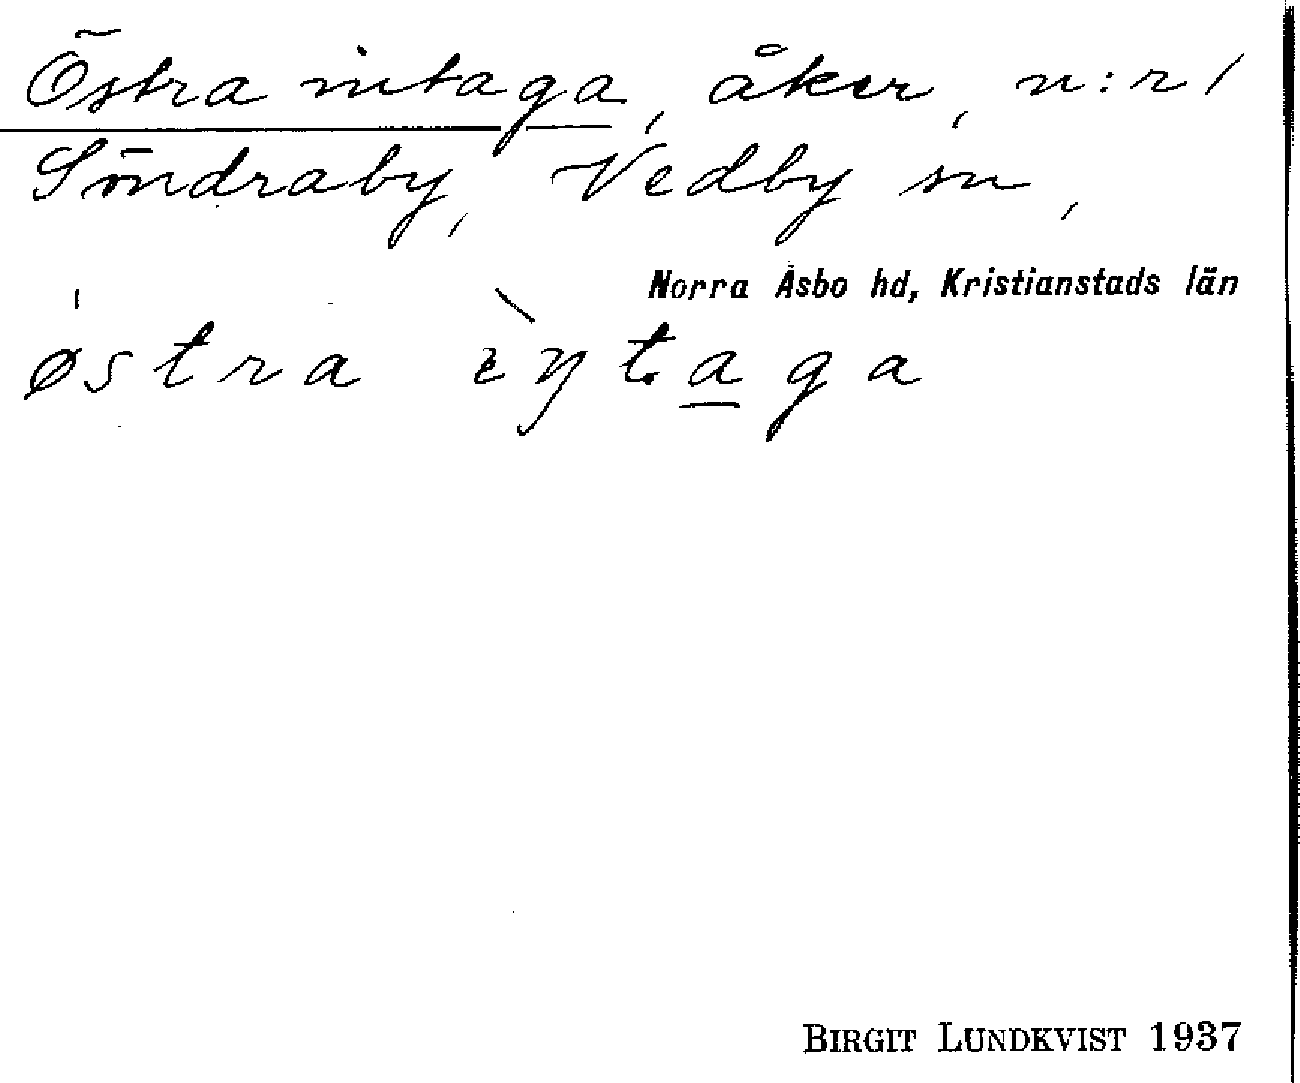 Östra intaga, åker, n:r 1
Söndraby, Vedby sn,
Norra Åsbo hd, Kristianstads län
østra ìŋtaga
BIRGIT LUNDKVIST 1937